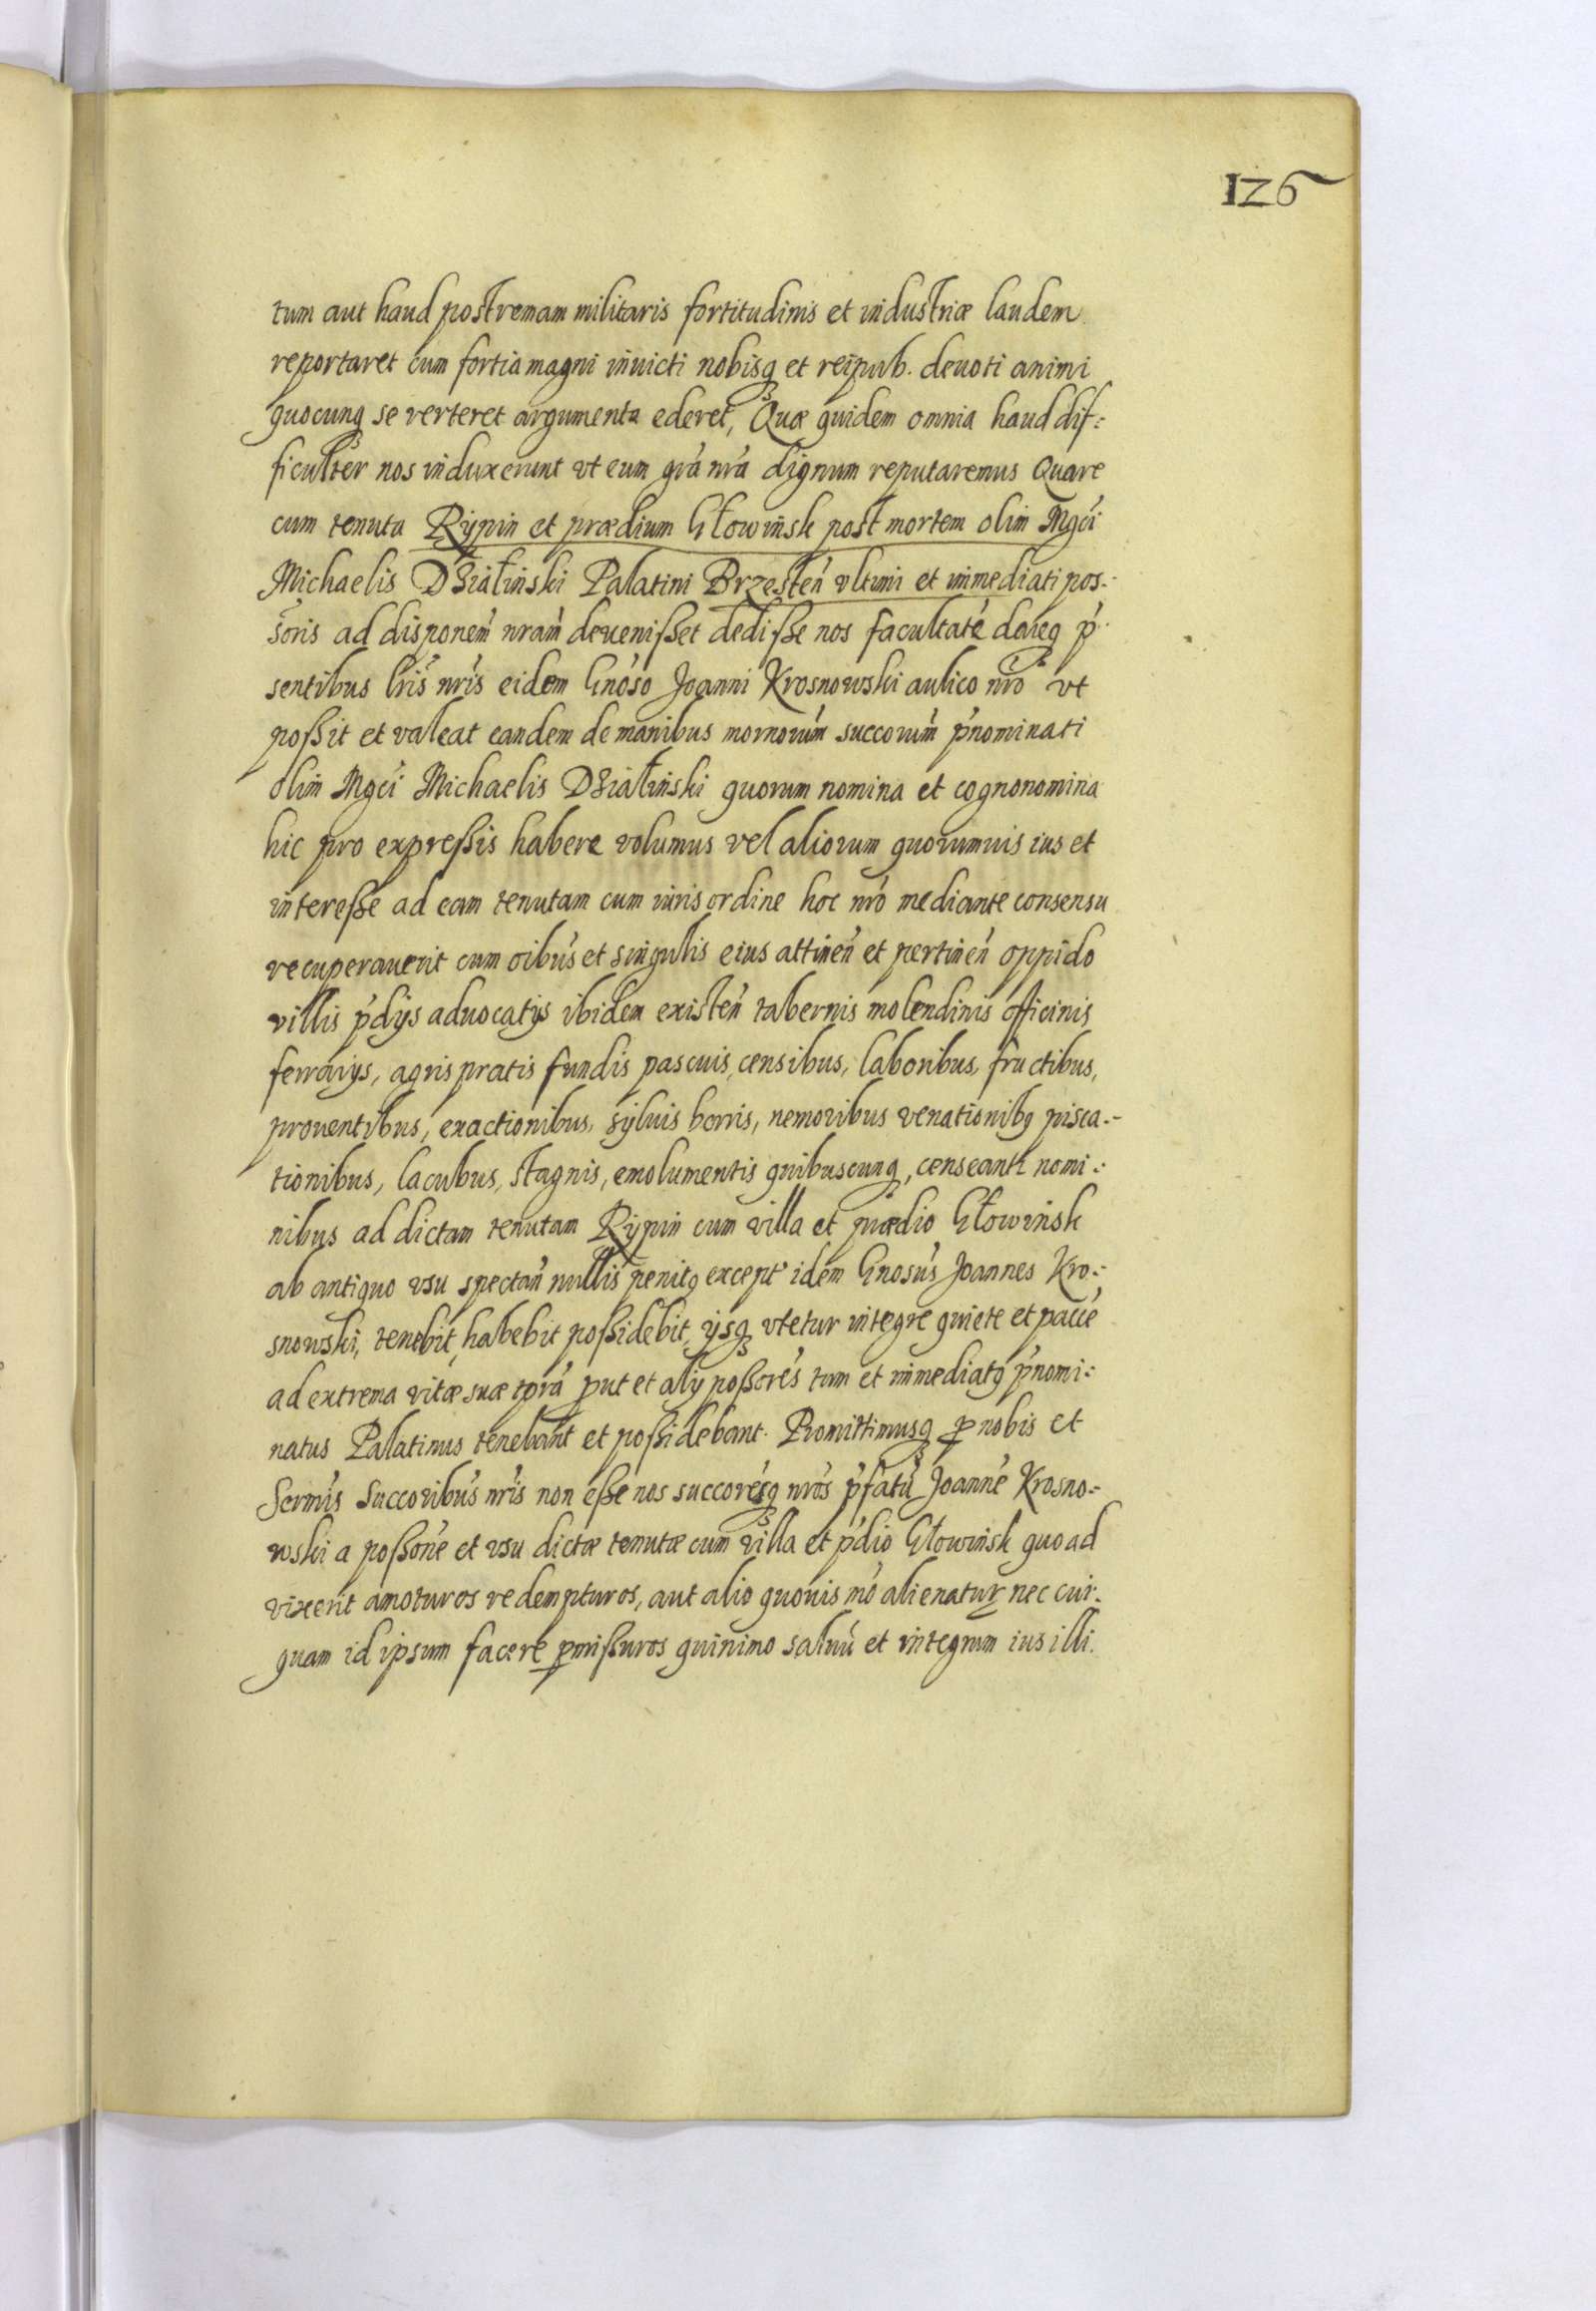 126
tum aut haud postremam militaris fortitudinis et industriæ laudem
reportaret cum fortia magni inuicti nobisq₃ et reipub. deuoti animi
quocunq₃ se verteret argumenta ederet, Quæ quidem omnia haud dif:
ficulter nos induxerunt vt eum grã nrã dignum reputaremus Quare
cum tenuta Rÿpin et prædium Głowińsk post mortem olim Mgći
Michaelis Dżiałiński Palatini Brzesteń vltimi et immediati pos:
šoris ad disponem̃ nram̃ deuenißet dediße nos facultatẽ dareq₃ p̃
sentibus lris̃ nris̃ eidem Gnõso Joanni Krosnowski aulico nrõ vt
poßit et valeat eandem de manibus mornorum̃ succorum̃ p̃nominati
olim Mgći Michaelis Dżiałiński quorum nomina et cognonomina
hic pro expreßis habere volumus vel aliorum quorumuis ius et
intereße ad eam tenutam cum iuris ordine hoc nrõ mediante consensu
recuperauerit cum oibus̃ et singulis eius attineñ et pertineñ oppido
villis p̃dijs aduocatijs ibidem existeñ tabernis molendinis officinis
ferrarijs, agris pratis fundis pascuis, censibus, laboribus, fructibus,
prouentibus, exactionibus, sÿluis borris, nemoribus venationibq₃ pisca:
tionibus, lacubus, stagnis, emolumentis quibuscunq₃, censeantr nomi:
nibus ad dictam tenutam Rÿpin cum villa et prædio Głowińsk
ab antiquo vsu spectañ nullis penitq₃ except' idem Gnosus̃ Joannes Kro:
snowski, tenebit, habebit poßidebit, ijsq₃ vtetur integre quiete et paccẽ
ad extrema vitæ suæ tp̃ra p̱ut et alij poßores̃ tum et immediatq₃ p̃nomi:
natus Palatinus tenebant et poßidebant. Promittimusq₃ p̱ nobis et
Sermis̃ Succoribus̃ nris̃ non eße nos succoresq̃₃ nros̃ p̃fatũ Joannẽ Krosno:
wski a poßonẽ et vsu dictæ tenutæ cum villa et p̃dio Głowińsk quoad
vixerit amoturos redempturos, aut alio quouis mõ alienatur nec cui:
quam id ipsum facere p̱mißuros quinimo saluũ et integrum ius illi.